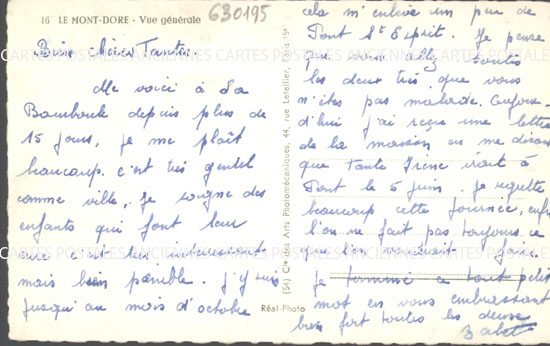 16 LE MONT-DORE - Vue générale
630195
Bien chères Tantes
Me voici à La
Bourboule depuis plus de
15 jours, je me plaît
beaucoup. c'est très gentil
comme ville, je soigne des
enfants qui font leur
cure c'est très intéressant
mais bien pénible. J'y suis
jusqu'au mois d'octobre
cela m'enlève un peu de
Pont St Esprit. Je pense
que vous allez toutes
les deux très que vous
n'êtes pas malade. Aujour-
d'hui j'ai reçue une lettre
de la maison en me disant
que Tante Irène irait à
Pont le 5 juin. Je regrette
beaucoup cette journée, enfin
l'on ne fait pas toujours ce
que l'on voudrait faire.
Je termine ce tout petit
mot en vous embrassant
bien fort toutes les deux
(54) Cie des Arts Photomécaniques, 44, rue Letellier, Paris 15e
Réal-Photo
CARTES POSTALES ANCIENNES CARTES POSTALES